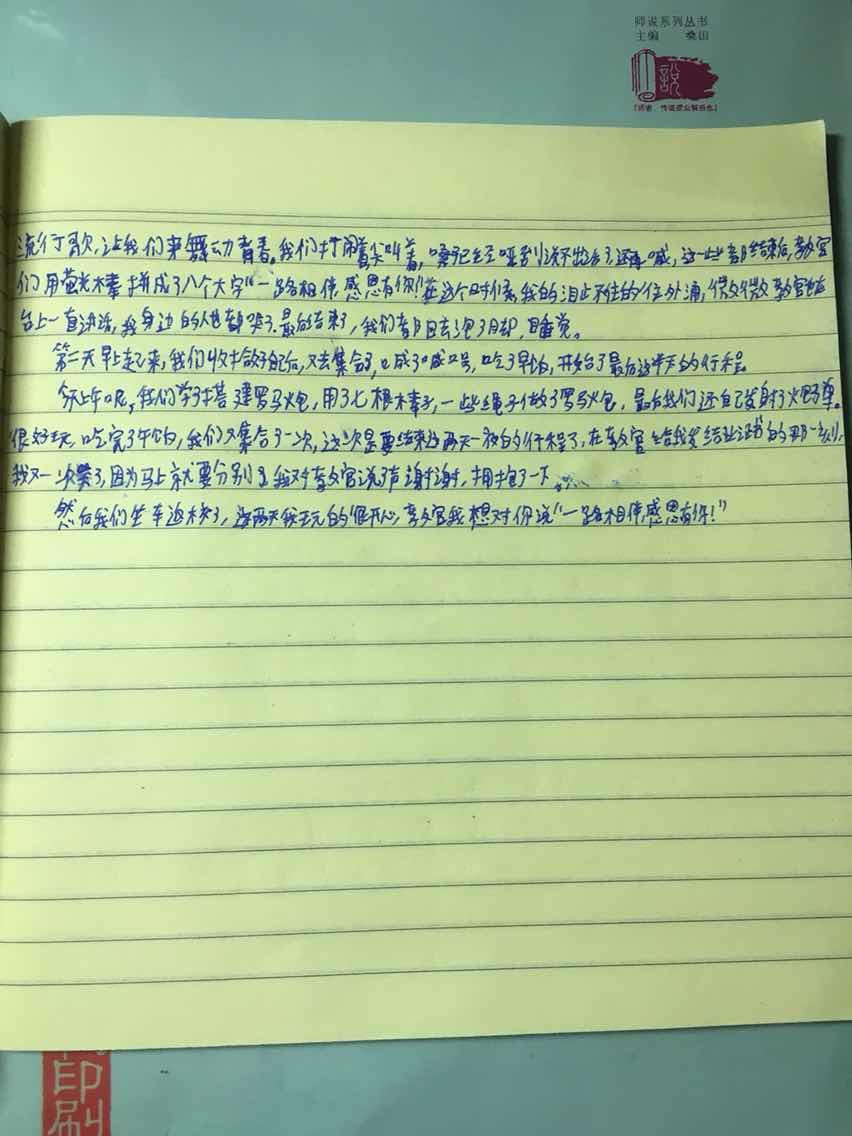 师说系列丛书
主编 桑田
说
「师者 传道受业解惑也」
流行歌,让我们来舞动青春。我们打闹着尖叫着,嗓子已经哑到说不出话了,还再喊,这一些都结束后,教官
们用萤光棒拼成了八个大字“一路相伴,感恩有你!”在这个时候,我的泪止不住的往外涌,微微教官也在
台上一直讲话,我身边的人也都哭了。最后结束了,我们都回去泡了脚,睡觉。
第二天早上起来,我们收拾好后,又去集合了,喊了喊口号,吃了早饭,开始了最后这半天的行程。
今天上午呢,我们学了搭建罗马火炮,用了七根棒子,一些绳子做了罗马火炮,最后我们还自己发射了火炮弹。
很好玩,吃完了午饭,我们又集合了一次,这次是要结束这两天一夜的行程了,在教官给我发结业证书的那一刻,
我又一次哭了,因为马上就要分别了我对教官说了声谢谢,拥抱了一下
然后我们坐车返校了,这两天我玩的很开心,教官我想对你说“一路相伴,感恩有你!”
印刷